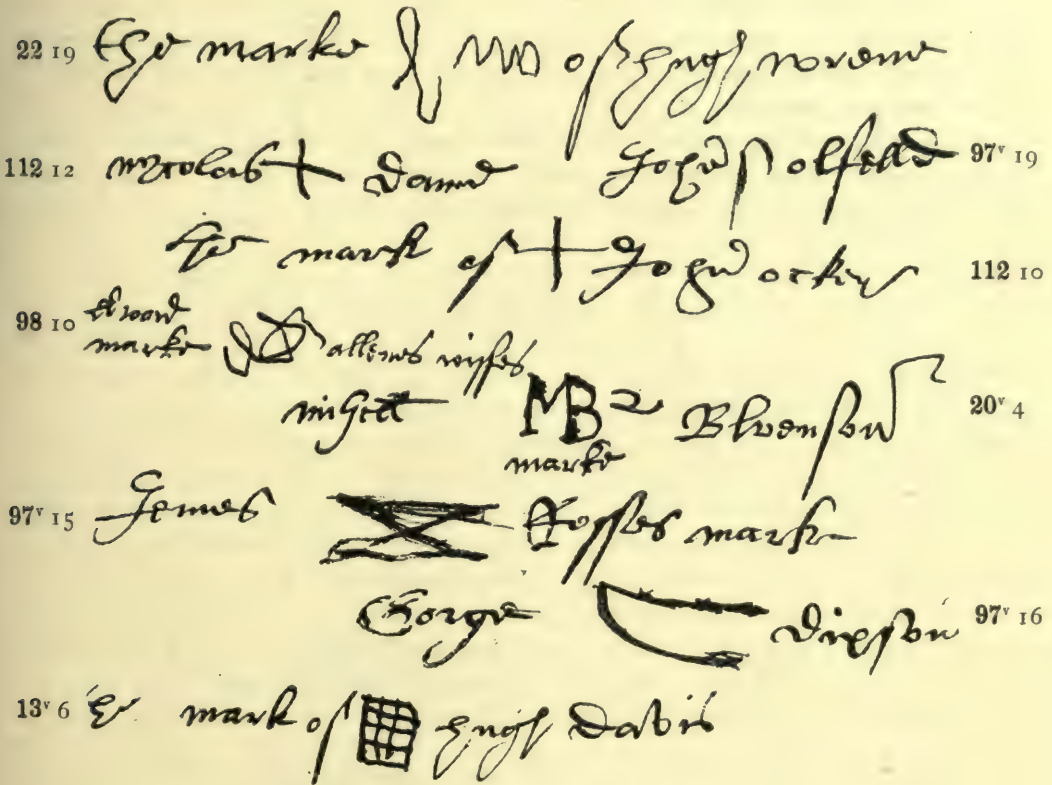 22 19 The marke of hugh wrene
112 12 nycolas dame John olfelld 97ᵛ 19
The mark of John ockers 112 10
98 10 edward
marke allenes wiffes
mihell MB Blvenson 20ᵛ 4
marke
97ᵛ 15 Jemes Rosses mark
Gorge dixson 97ᵛ 16
13ᵛ 6 mark of hugh davis